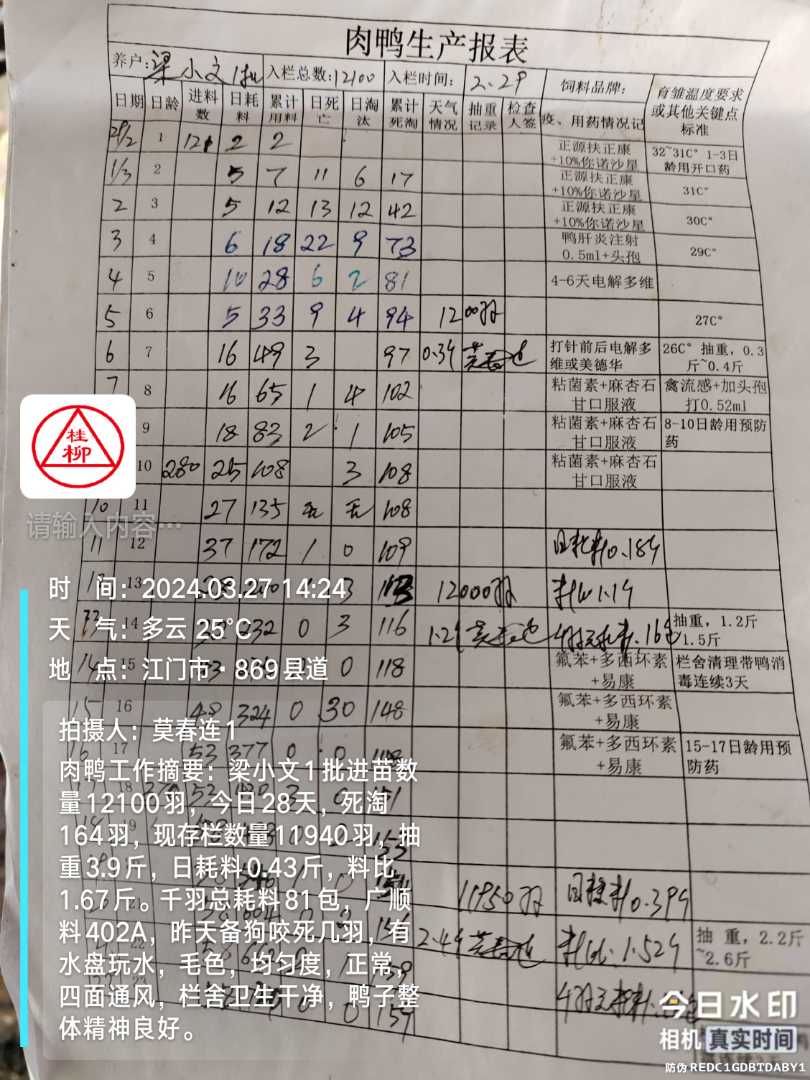 肉鸭生产报表
养户: 梁小文1批 入栏总数: 12100 入栏时间: 2.29 饲料品牌: 育雏温度要求或其他关键点标准
日期 日龄 进料数 日耗料 累计用料 日死亡 日淘汰 累计死淘 天气情况 抽重记录 检查人签 疫、用药情况记
29/2 1 2 2 正源扶正康+10%你诺沙星 32~31C° 1-3日龄用开口药
1/3 2 5 7 11 6 17 正源扶正康+10%你诺沙星 31C°
2 3 5 12 13 12 42 正源扶正康+10%你诺沙星 30C°
3 4 6 18 22 9 73 鸭肝炎注射0.5ml+头孢 29C°
4 5 10 28 6 2 81 4-6天电解多维
5 6 5 33 9 4 94 1200羽 27C°
6 7 16 49 3 97 0.34 莫春连 打针前后电解多维或美德华 26C° 抽重，0.3斤~0.4斤
7 8 16 65 1 4 102 粘菌素+麻杏石甘口服液 禽流感+加头孢打0.52ml
9 18 83 2 1 105 粘菌素+麻杏石甘口服液 8-10日龄用预防药
10 280 25 108 3 108 粘菌素+麻杏石甘口服液
10 11 27 135 无 无 108
11 12 37 172 1 0 109 日耗料0.184
13 3 113 12000羽 料比1.14
14 232 0 3 116 抽重，1.2斤 1.5斤
14 15 0 118 氟苯+多西环素+易康 栏舍清理带鸭消毒连续3天
15 16 48 324 0 30 148 氟苯+多西环素+易康
16 17 53 377 0 0 148 氟苯+多西环素+易康 15-17日龄用预防药
18 151
19 153
11950羽 日耗料0.394
2.44 莫春连 料比:1.524 抽 重，2.2斤~2.6斤
0 0 159
桂柳
请输入内容…
时 间：2024.03.27 14:24
天 气：多云 25°C
地 点：江门市·869县道
拍摄人：莫春连1
肉鸭工作摘要：梁小文1批进苗数
量12100羽，今日28天，死淘
164羽，现存栏数量11940羽，抽
重3.9斤，日耗料0.43斤，料比
1.67斤。千羽总耗料81包，广顺
料402A，昨天备狗咬死几羽，有
水盘玩水，毛色，均匀度，正常，
四面通风，栏舍卫生干净，鸭子整
体精神良好。
今日水印
相机 真实时间
防伪 REDC1GDBTDABY1